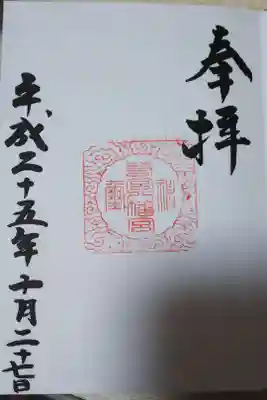 奉拝
平成二十五年十月二十七日